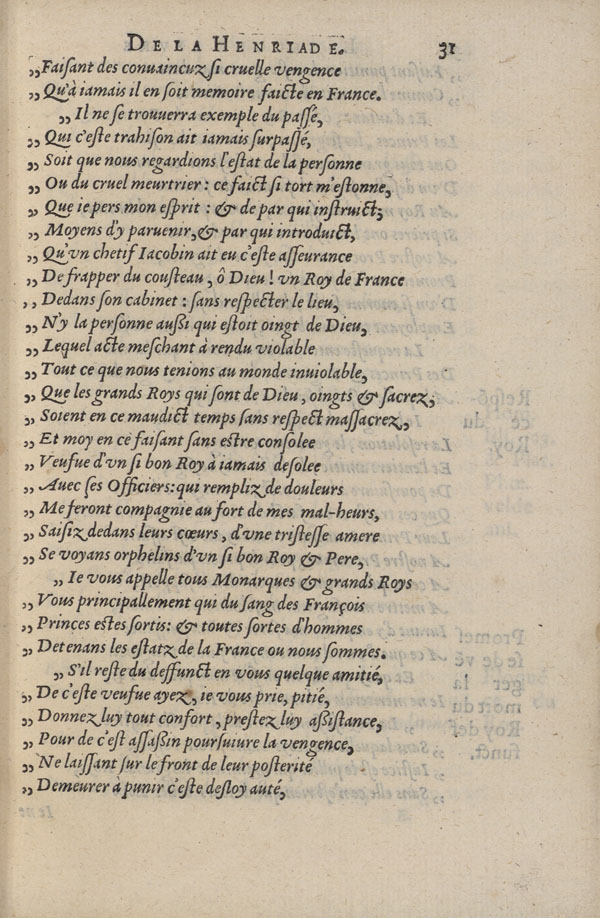 DE LA HENRIADE. 31
„Faisant des conuaincuz si cruelle vengence
„ Qu'à iamais il en soit memoire faicte en France.
„ Il ne se trouuerra exemple du passé,
„ Qui c'este trahison ait iamais surpassé,
„ Soit que nous regardions l'estat de la personne
„ Ou du cruel meurtrier : ce faict si tort m'estonne,
„ Que ie pers mon esprit : & de par qui instruict;
„ Moyens d'y paruenir, & par qui introduict,
„ Qu'vn chetif Iacobin ait eu c'este asseurance
„ De frapper du cousteau, ô Dieu ! vn Roy de France
,, Dedans son cabinet : sans respecter le lieu,
„ N'y la personne aussi qui estoit oingt de Dieu,
„ Lequel acte meschant à rendu violable
„ Tout ce que nous tenions au monde inuiolable,
„ Que les grands Roys qui sont de Dieu, oingts & sacrez,
„ Soient en ce maudict temps sans respect massacrez,
„ Et moy en ce faisant sans estre consolee
„ Veufue d'vn si bon Roy à iamais desolee
„ Auec ses Officiers: qui rempliz de douleurs
„ Me feront compagnie au fort de mes mal-heurs,
„ Saisiz dedans leurs cœurs, d'vne tristesse amere
„ Se voyans orphelins d'vn si bon Roy & Pere,
„ Ie vous appelle tous Monarques & grands Roys
„ Vous principallement qui du sang des François
„ Princes estes sortis: & toutes sortes d'hommes
„ Detenans les estatz de la France ou nous sommes.
„ S'il reste du deffunct en vous quelque amitié,
„ De c'este veufue ayez, ie vous prie, pitié,
„ Donnez luy tout confort, prestez luy assistance,
„ Pour de c'est assassin poursuiure la vengence,
„ Ne laissant sur le front de leur posterité
„ Demeurer à punir c'este desloyauté,